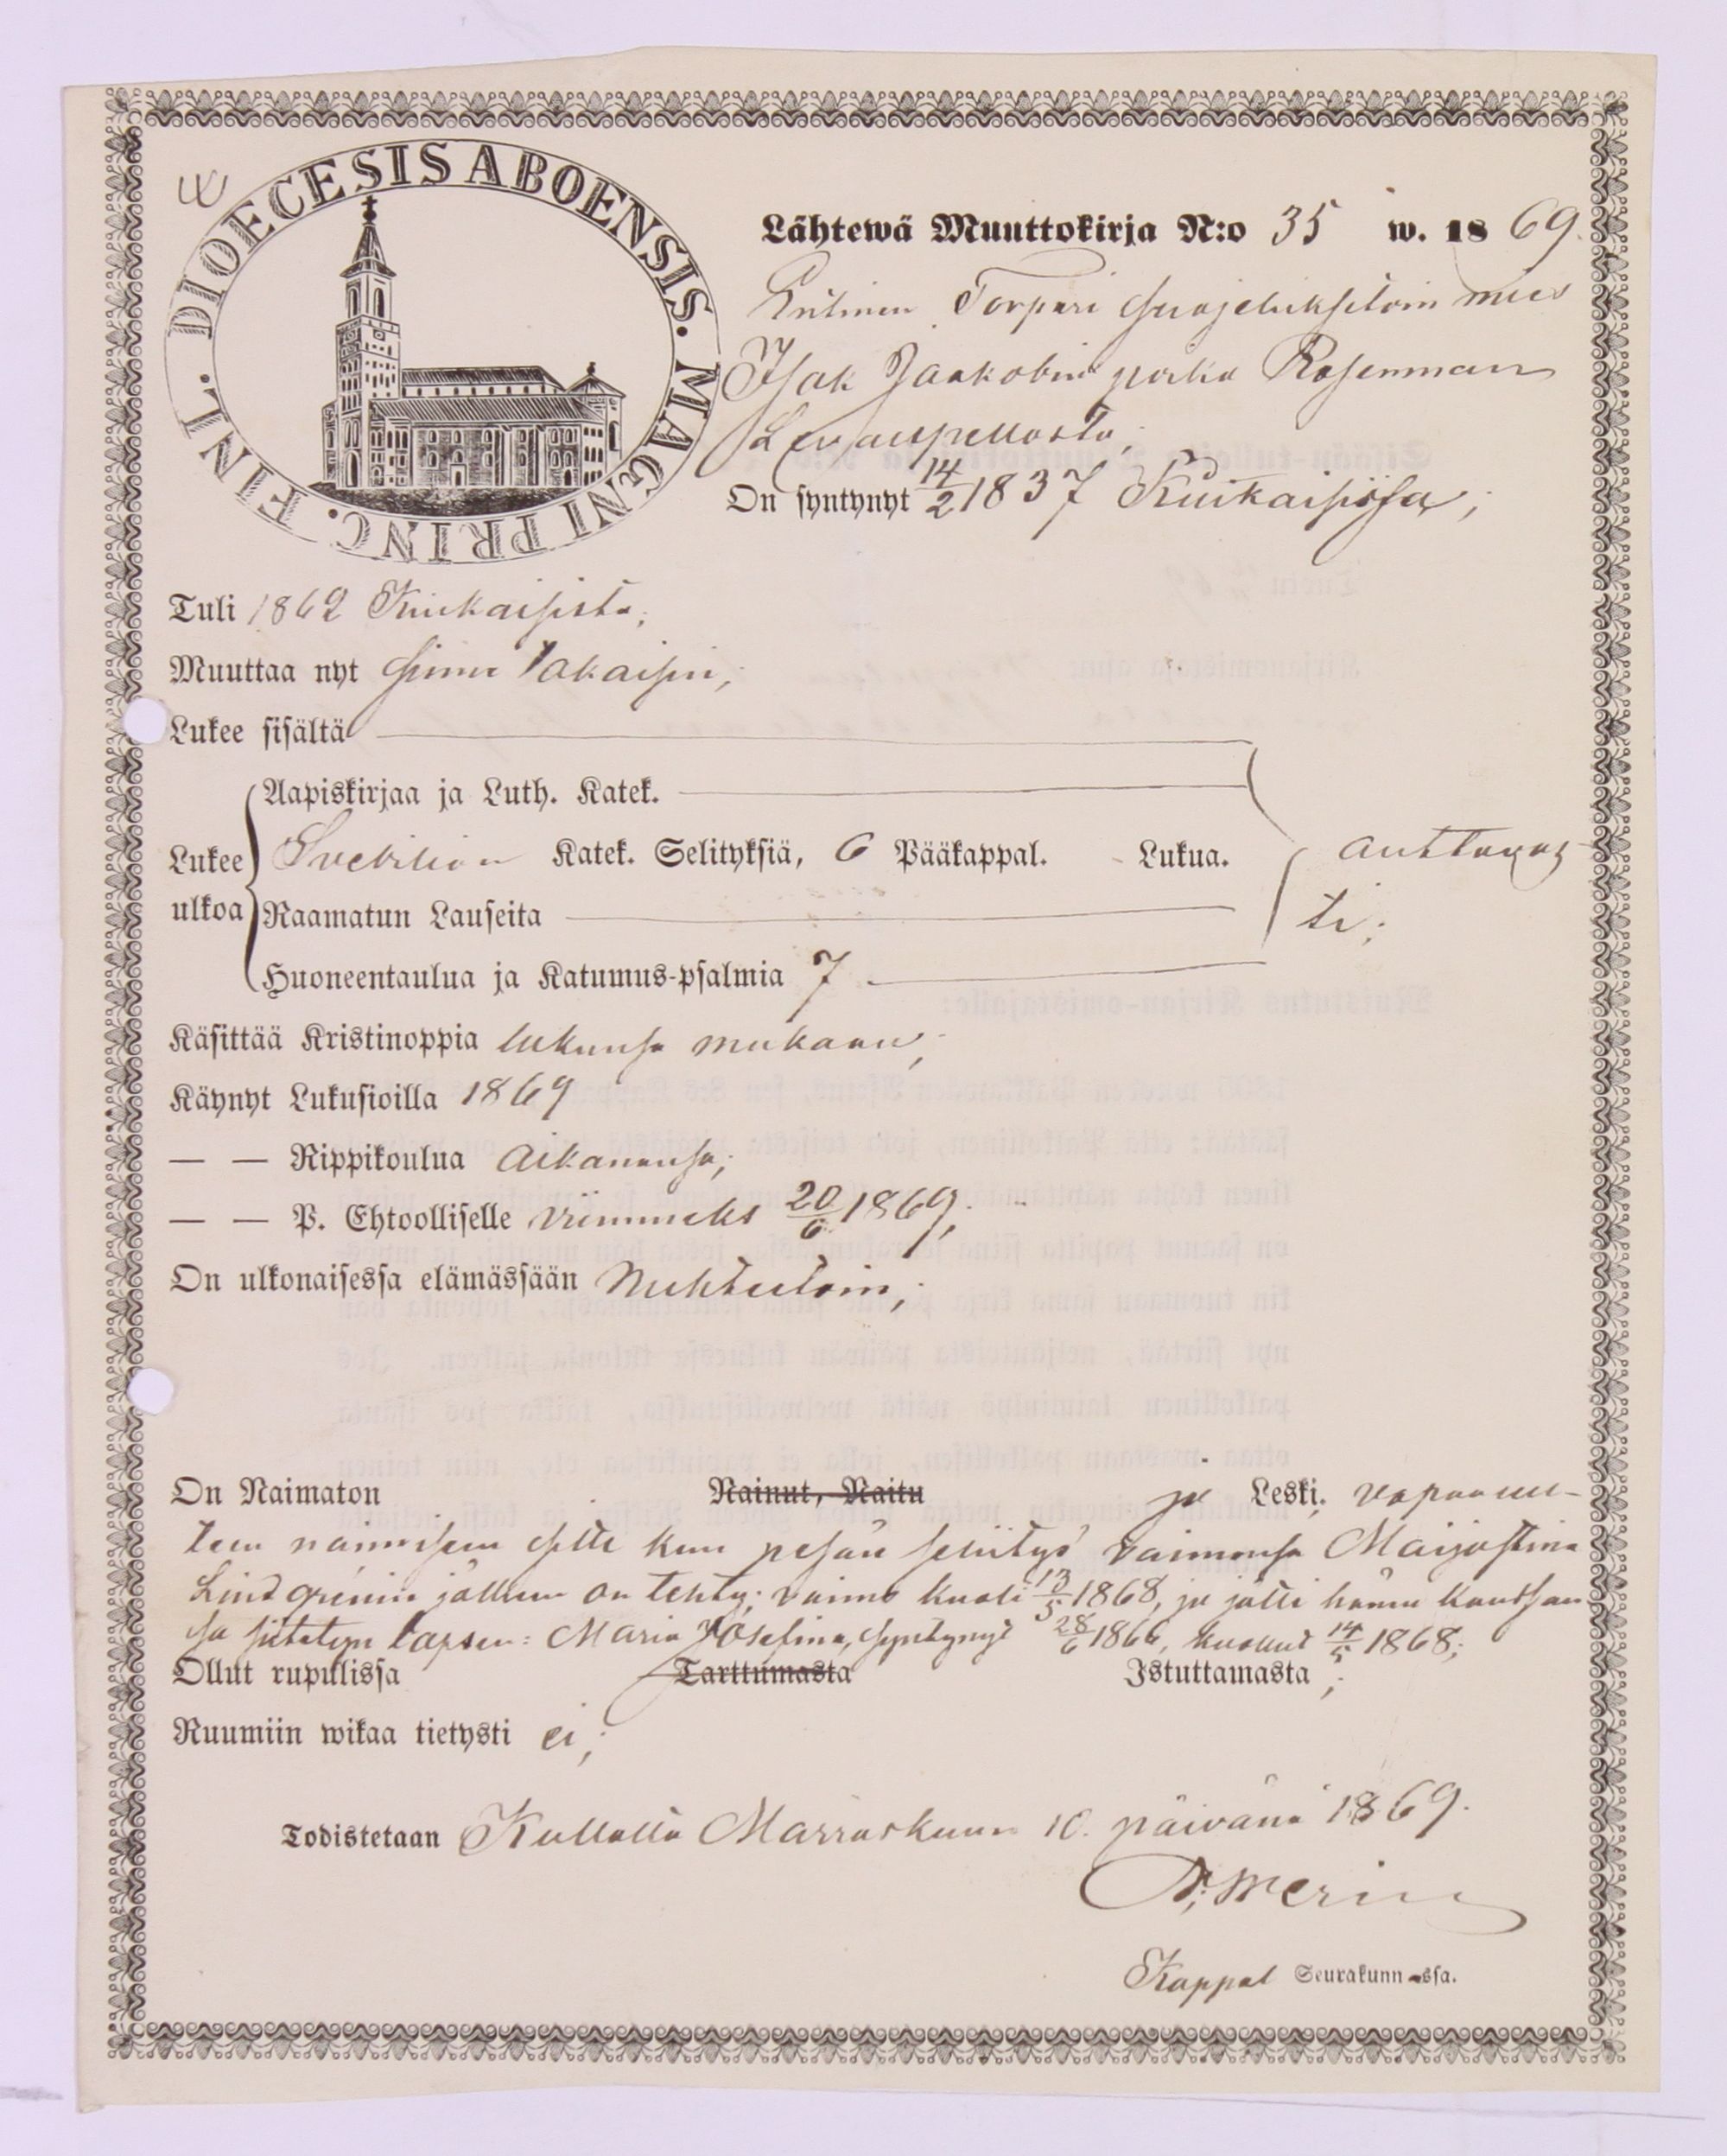 DIOECESIS ABOENSIS. MAGNI PRINC. FINL.
Lähtewä Muuttokirja N:o 35 w. 1869.
Entinen Torpari suojeluksetoin mies
Isak Jaakobin poika Rosenman
Levanpellosta;
On syntynyt 14/2 1837 Kiukaisissa;
Tuli 1862 Kiukaisista;
Muuttaa nyt sinne takaisin;
Lukee sisältä
Aapiskirjaa ja Luth. Katek.
Lukee ulkoa Svebilion Katek. Selityksiä, 6 Pääkappal. - Lukua. auttavas-
Raamatun Lauseita ti;
Huoneentaulua ja Katumus-psalmia 7
Käsittää Kristinoppia lukunsa mukaan;
Käynyt Lukusioilla 1869
— — Rippikoulua Aikanansa;
— — P. Ehtoolliselle viimmeks 20/6 1869;
On ulkonaisessa elämässään Nuhteetoin;
On Naimaton Nainut, Naitu ja Leski; vapaa uu-
teen naimiseen sitte kun pesän selvitys vaimonsa Maijastina
Lindgrenin jälkeen on tehty; vaimo kuoli 13/5 1868, ja jätti hänen kanssan
sa siitetyn lapsen: Maria Josefina, syntynyt 28/6 1866, kuollut 14/5 1868;
Ollut rupulissa Tarttumasta Istuttamasta;
Ruumiin wikaa tietysti ei;
Todistetaan Kullalla Marraskuun 10. päivänä 1869.
Merin
Kappal Seurakunn-ssa.